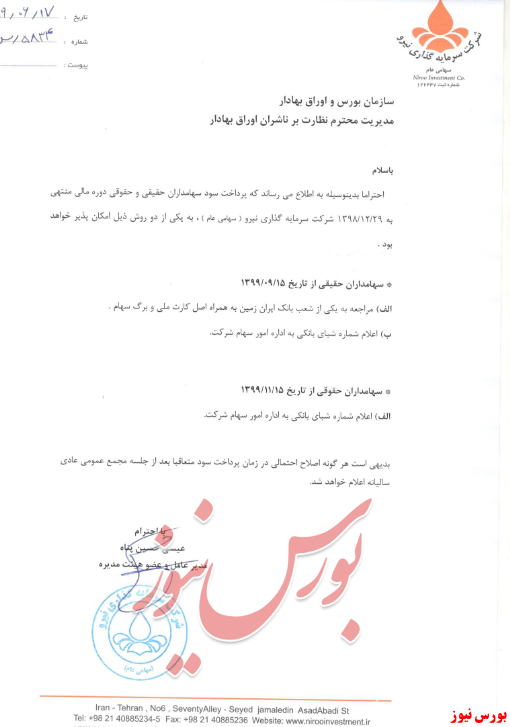 تاریخ :
۹,۰۶,۱۷
شماره :
پیوست :
شرکت سرمایه گذاری نیرو
سهامی عام
Niroo Investment Co.
سازمان بورس و اوراق بهادار
مدیریت محترم نظارت بر ناشران اوراق بهادار
باسلام
احتراما بدینوسیله به اطلاع می رساند که پرداخت سود سهامداران حقیقی و حقوقی دوره مالی منتهی
به ۱۳۹۸/۱۲/۲۹ شرکت سرمایه گذاری نیرو ( سهامی عام ) ، به یکی از دو روش ذیل امکان پذیر خواهد
بود .
* سهامداران حقیقی از تاریخ ۱۳۹۹/۰۹/۱۵
الف) مراجعه به یکی از شعب بانک ایران زمین به همراه اصل کارت ملی و برگ سهام .
ب) اعلام شماره شبای بانکی به اداره امور سهام شرکت.
* سهامداران حقوقی از تاریخ ۱۳۹۹/۱۱/۱۵
الف) اعلام شماره شبای بانکی به اداره امور سهام شرکت.
بدیهی است هر گونه اصلاح احتمالی در زمان پرداخت سود متعاقبا بعد از جلسه مجمع عمومی عادی
سالیانه اعلام خواهد شد.
با احترام
عیسی حسین پناه
مدیر عامل و عضو هیئت مدیره
بورس نیوز
شرکت سرمایه گذاری نیرو
(سهامی عام)
Iran - Tehran , No6 , SeventyAlley - Seyed jamaledin AsadAbadi St
Tel: +98 21 40885234-5 Fax: +98 21 40885236 Website: www.nirooinvestment.ir
بورس نیوز